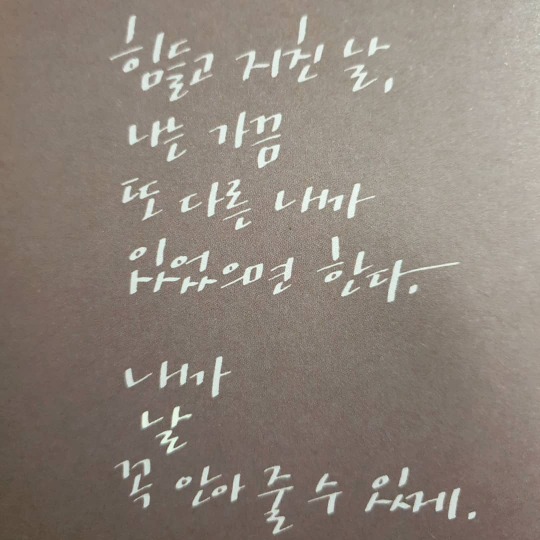 힘들고 지친 날,
나는 가끔
또 다른 내가
있었으면 한다.
내가
날
꼭 안아 줄 수 있게.